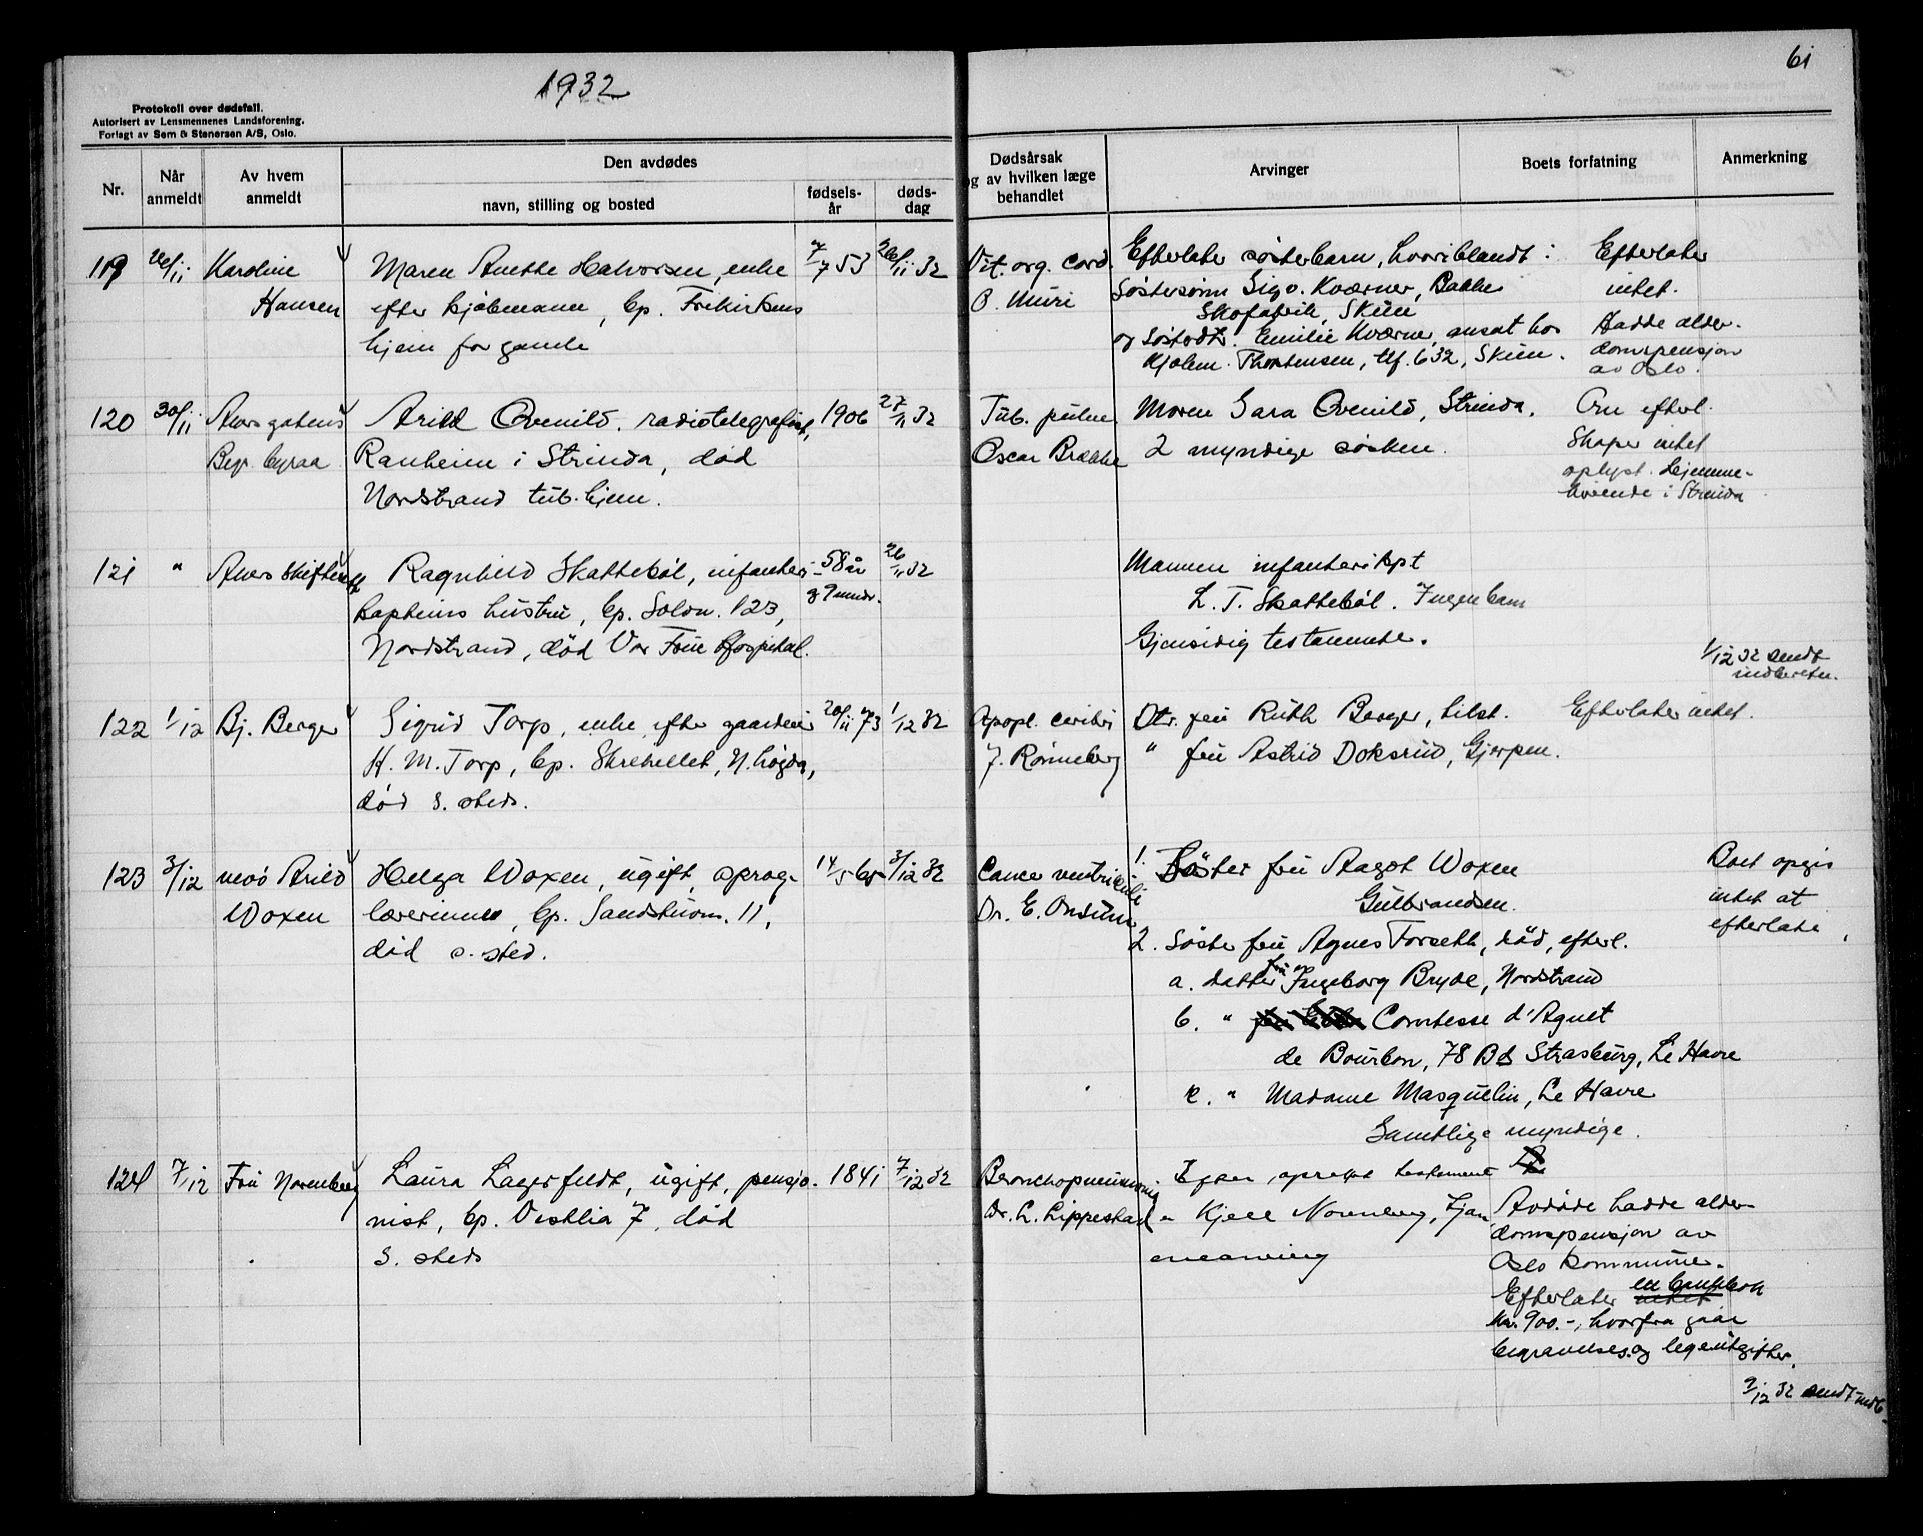 1932
61
Protokoll over dødsfall.
Autorisert av Lensmennenes Landsforening.
Forlagt av Sem & Stenersen A/S, Oslo.
Nr.
Når anmeldt
Av hvem anmeldt
Den avdødes
navn, stilling og bosted
fødsels-år
døds-dag
Dødsårsak
og av hvilken læge
behandlet
Arvinger
Boets forfatning
Anmerkning
119 26/11 Karoline Maren Anette Halvorsen, enke 7/7 53 26/11 32
Hansen efter kjøbmann, bp. Frikirkens
hjem for gamle
Vit. org. cord.
O. Muri
Efterlater søsterbarn, hvoriblandt:
Søstersønn Sigv. Kværner, Bakke
Skofabrik, Skien
og Søsterdtr. Emilie Kværner, ansat hos
Kjølem. Thorstensen, tlf. 632, Skien.
Efterlater
intet.
Hadde alder-
domspensjon
av Oslo.
120 30/11 Akersgatens Arild Ovenild, radiotelegrafist, 1906 27/11 32
Begr. byraa Ranheim i Strinda, død
Nordstrand tub. hjem.
Tub. pulm.
Oscar Brække
Moren Sara Ovenild, Strinda.
2 myndige søsken.
Om efterl.
skaper intet
oplyst. Hjemme-
hørende i Strinda
121 " Akers skifterett Ragnhild Skattebøl, infanteri- 58 år 26/11 32
kapteins hustru, bp. Solvn. 123, og 9 mndr.
Nordstrand, død Vor Frue Hospital.
Mannen infanterikpt
L. T. Skattebøl. Ingen barn
Gjensidig testamente.
1/12 32 sendt
indberetn.
122 1/12 Bj. Berger Sigrid Torp, enke efter gaardeier 20/11 73 1/12 32
H. M. Torp, bp. Skrenellet, N. høgda,
død s. steds.
Apopl. cerebri
J. Rönneberg
Dtr. fru Ruth Berger, tilst.
" fru Astrid Doksrud, Gjerpen.
Efterlater intet.
123 3/12 nevø Arild Helga Woxen, ugift, sprog- 14/5 65 3/12 32
Woxen lærerinne, bp. Sandstuvn. 11,
død s. sted.
Cancer ventriculi
Dr. E. Onsum
1. Søster fru Aagot Woxen
Gulbrandsen.
2. Søster fru Agnes Forseth, død, efterl.
a. datter fru Ingeborg Bryde, Nordstrand
b. " Comtesse d'Agnet
de Bourbon, 78 Bd Strasburg, Le Havre
c. " Madame Masquelin, Le Havre
Samtlige myndige.
Boet opgis
intet at
efterlate
124 7/12 Fru Norenberg Laura Lagerfeldt, ugift, pensjo- 1841 7/12 32
nist, bp. Vestlia 7, død
s. steds
Bronchopneumonia
Dr. L. Lippestad
Efter oprettet testament
er Kjell Norenberg, Ljan
enearving
Avdøde hadde alder-
domspensjon av
Oslo kommune.
Efterlater intet en bankbok
kr. 900.-, hvorfra gaar
begravelses- og legeutgifter.
9/12 32 sendt indb.